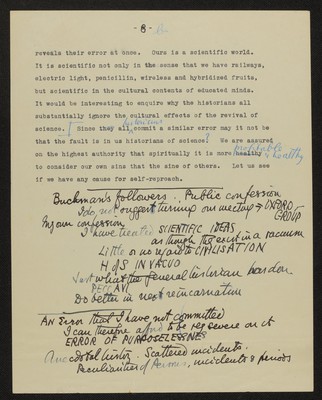 - 8 -
reveals their error at once. Ours is a scientific world.
It is scientific not only in the sense that we have railways,
electric light, penicillin, wireless and hybridized fruits,
but scientific in the cultural contents of educated minds.
It would be interesting to enquire why the historians all
substantially ignore the cultural effects of the revival of
historians
science. [ Since they all commit a similar error may it not be
that the fault is in us historians of science? We are assured
profitable
on the highest authority that spiritually it is more healthy & healthy
to consider our own sins than the sins of others. Let us see
if we have any cause for self-reproach.
Buchman's followers. Public confession
I do not suggest turning our meeting → OXFORD
GROUP
My own confession
I have treated SCIENTIFIC IDEAS
as though they exist in a vacuum
Little or no regard to CIVILISATION
H of S IN VACUO
Just what the general historian has done.
PECCAVI
Do better in next reincarnation
AN Error that I have not committed
I can therefore afford to be very severe on it
ERROR OF PURPOSELESSNESS
Anecdotal history. Scattered incidents.
Peculiarities of Persons, incidents & periods